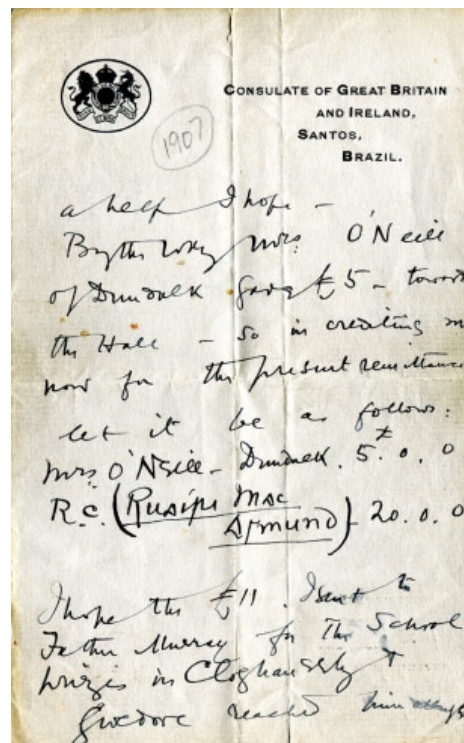 CONSULATE OF GREAT BRITAIN
AND IRELAND,
SANTOS,
BRAZIL.
1907
a help I hope -
By the way Mrs. O'Neill
of Dundalk gave £5 - toward
the Hall - so in crediting m
now for the present remittance
let it be as follows:
Mrs O'Neill - Dundalk. 5£. 0. 0
R.C. (
) - 20. 0. 0
I hope the £11. I sent to
Father Murray for the School
prizes in Cloghaneely &
Gweedore reached him